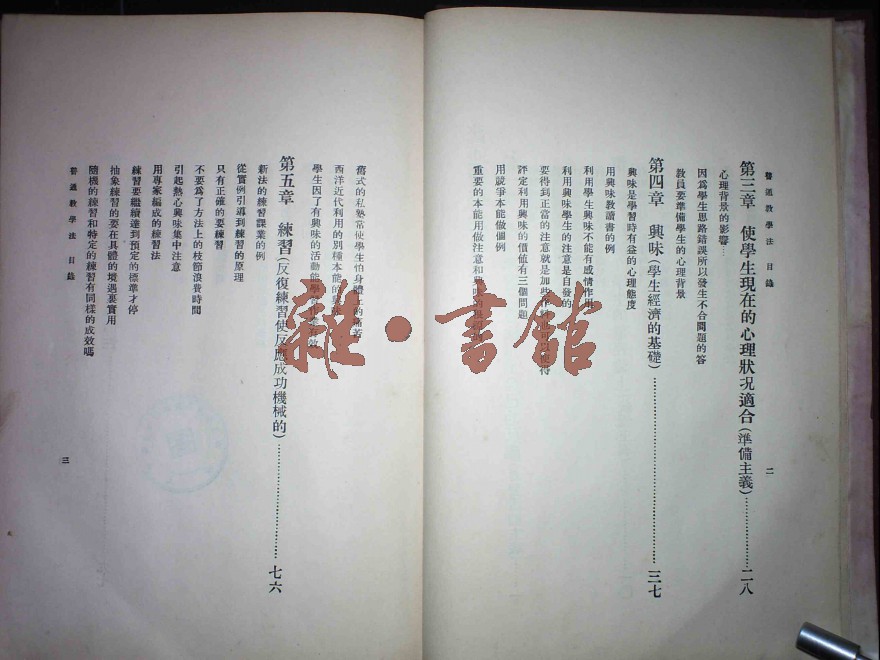 普通教學法 目錄
二
第三章 使學生現在的心理狀況適合(準備主義)……二八
心理背景的影響…
因爲學生思路錯誤所以發生不合問題的答
教員要準備學生的心理背景
第四章 興味(學生經濟的基礎)……三七
興味是學習時有益的心理態度
用興味教讀書的例
利用學生興味不能有感情作用
利用興味學生的注意是自發的
要得到正當的注意就是加些
評定利用興味的價値有三個問題
用競爭本能做個例
重要的本能用做注意和
舊式的私塾常使學生怕身體上的痛苦
西洋近代利用的別種本能的
學生因了有興味的活動能
第五章 練習(反復練習使反應成功機械的)……七六
新法的練習課業的例
從實例引導到練習的原理
只有正確的要練習
不要爲了方法上的枝節浪費時間
引起熱心興味集中注意
用專家編成的練習法
練習要繼續達到預定的標準才停
抽象練習的要在具體的境遇裏實用
隨機的練習和特定的練習有同樣的成效嗎
普通教學法 目錄
三
雜·書館